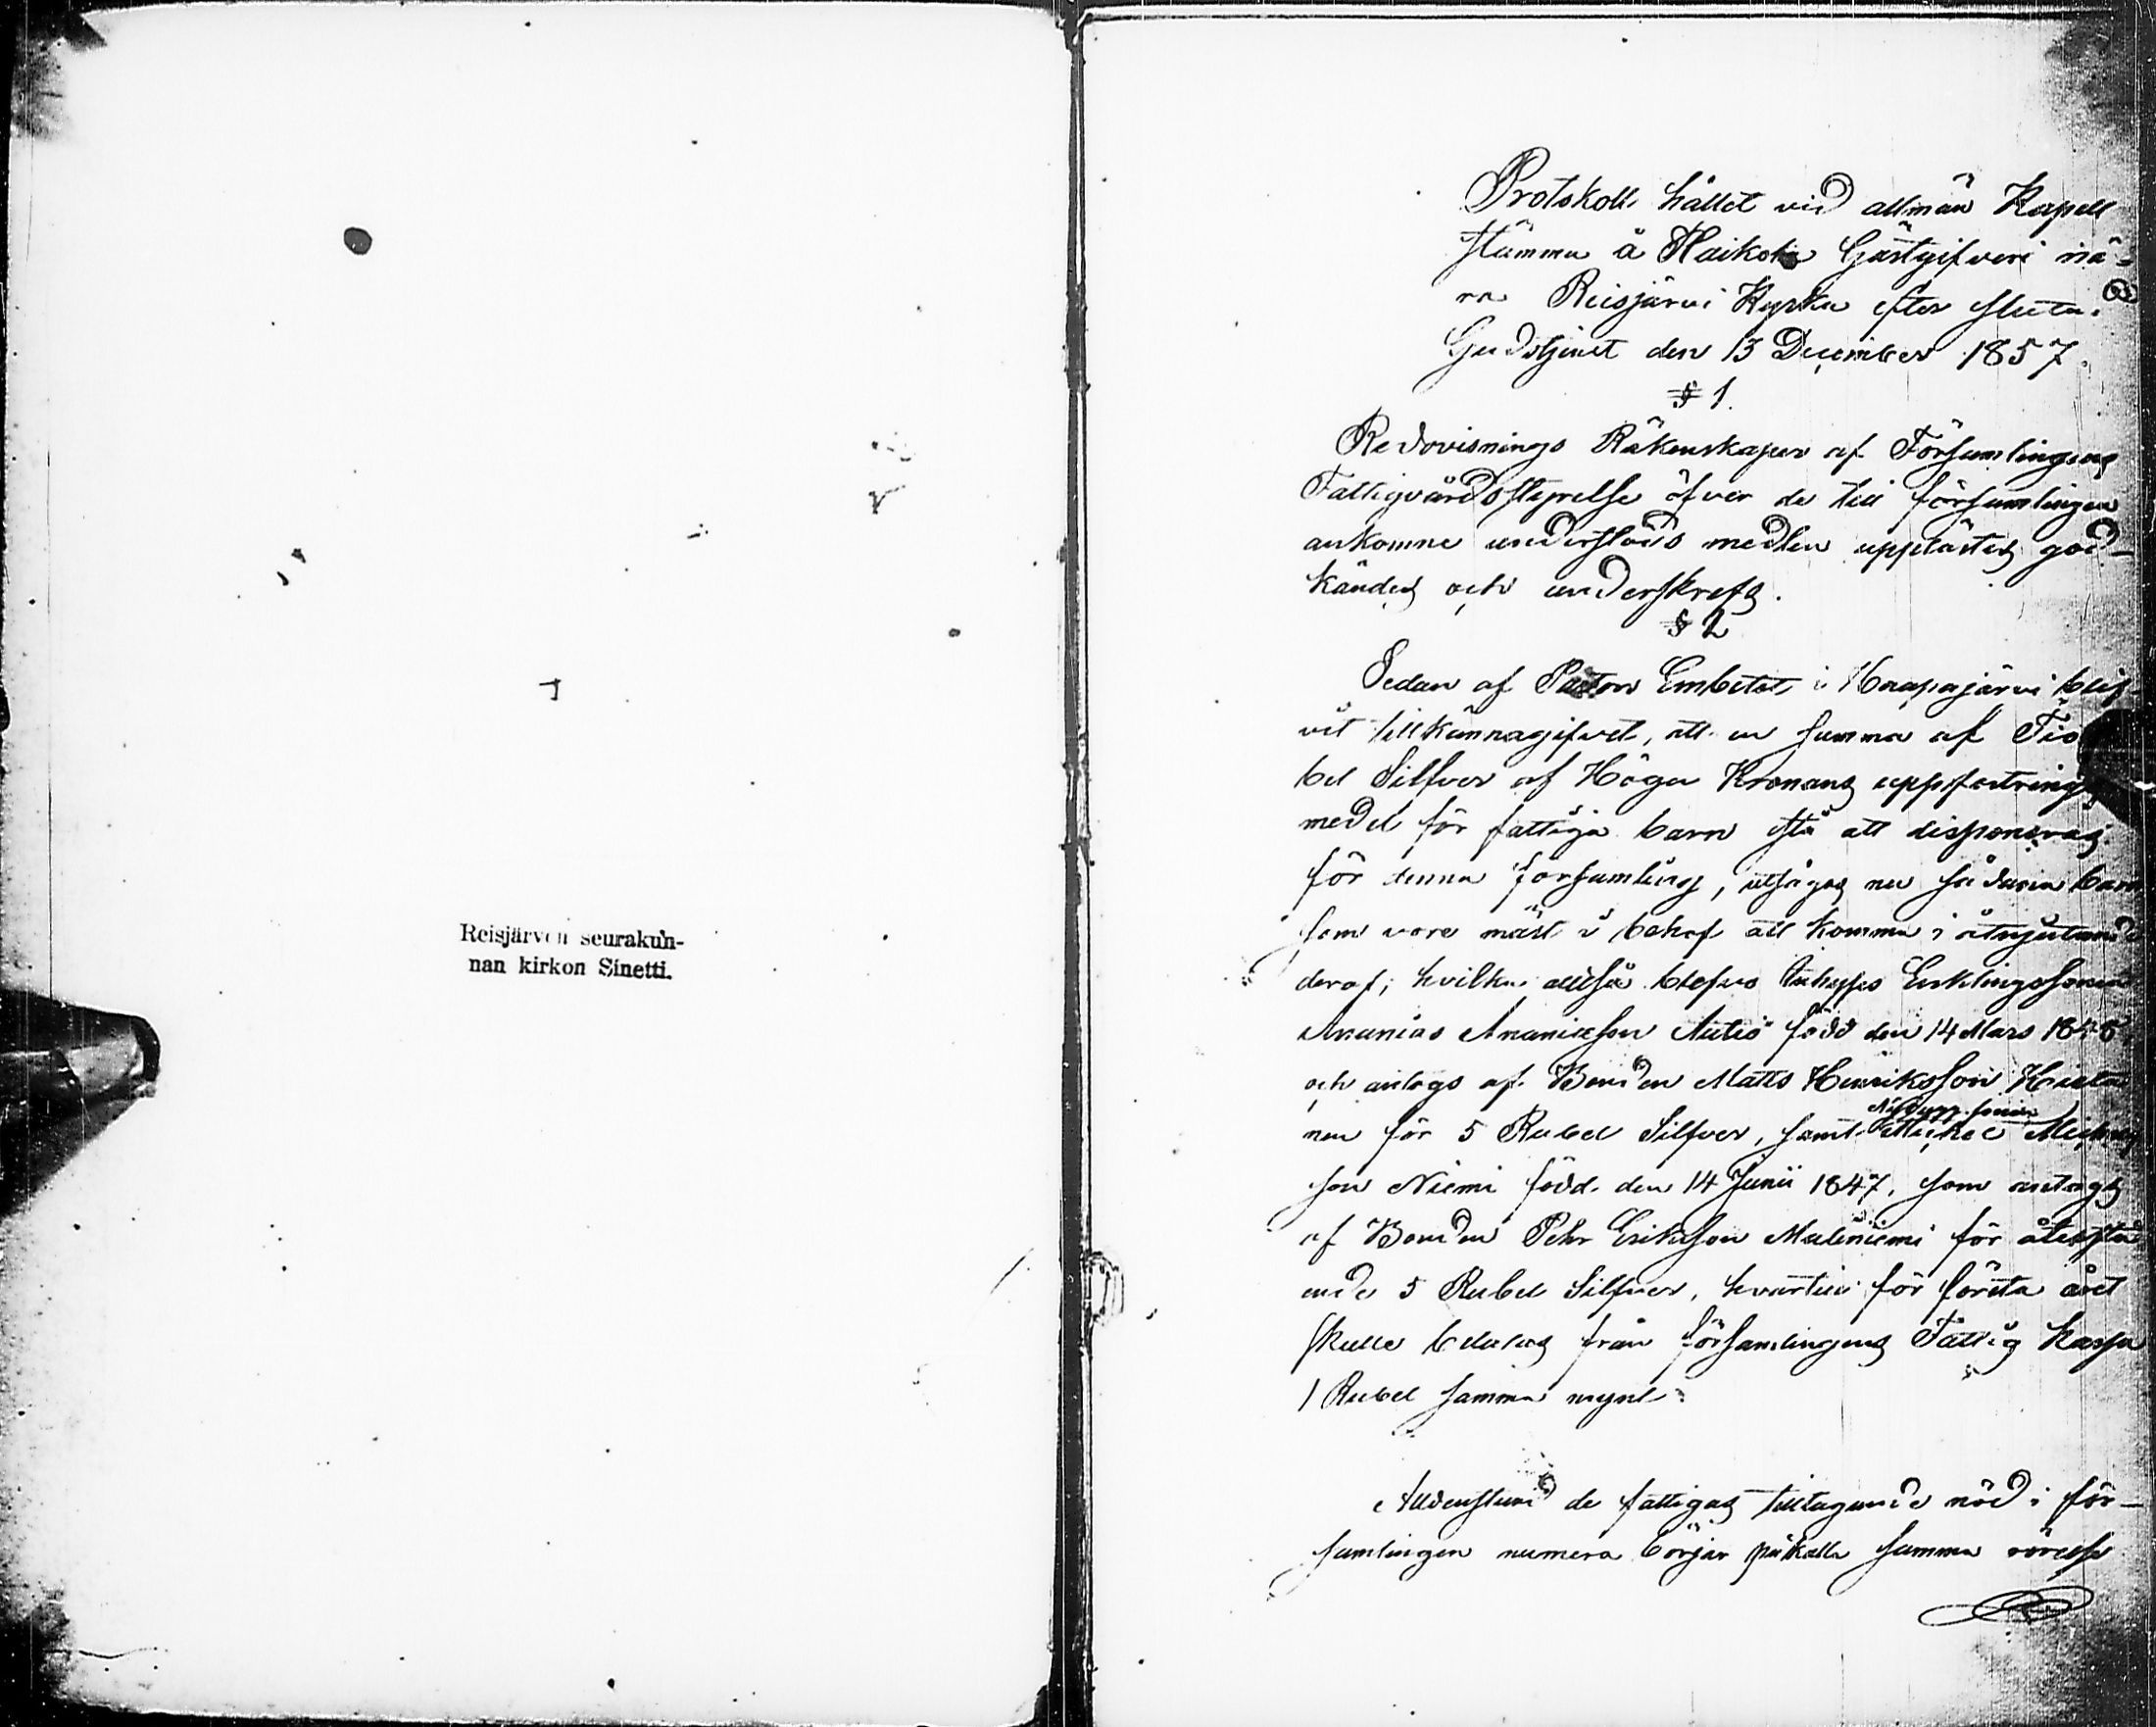 Reisjärven seurakun-
nan kirkon Sinetti.
Protokoll hållet vid allmän Kapell
stämma å Haikola Gästgifveri nä-
ra Reisjärvi Kyrka efter slutad
Gudstjenst den 13 December 1857.
§ 1.
Redovisnings Räkenskaper af Församlingens
Fattigvårdsstyrelse öfver de till församlingen
ankomne understöds medlen upplästes god-
kändes och underskrefs.
§ 2
Sedan af Pastors Embetet i Haapajärvi blif-
vit tillkännagifvet, att en summa af Tio
bel Silfver af Höga Kronans uppfostrings
medel för fattiga barn stå att disponeras
för denna församling, utsågos nu sådana barn
som vore mäst i behof att komma i åtnjutande
deraf, hvilka alltså blefvo Inhyses Enklingssonen
Ananias Ananiasson Autio född den 14 Mars 1848
och antogs af Bonden Matts Henriksson Hieta
nen för 5 Rubel Silfver, samt Michel Michels
son Niemi född den 14 Junii 1847, som antogs
af Bonden Pehr Eriksson Muliniemi för återstå
ende 5 Rubel Silfver, hvartill för första året
skulle betalas från församlingens Fattig kassa
1 Rubel samma mynt.
Alldenstund de fattigas tilltagande nöd i för-
samlingen numera börjar påkalla samma rörelse